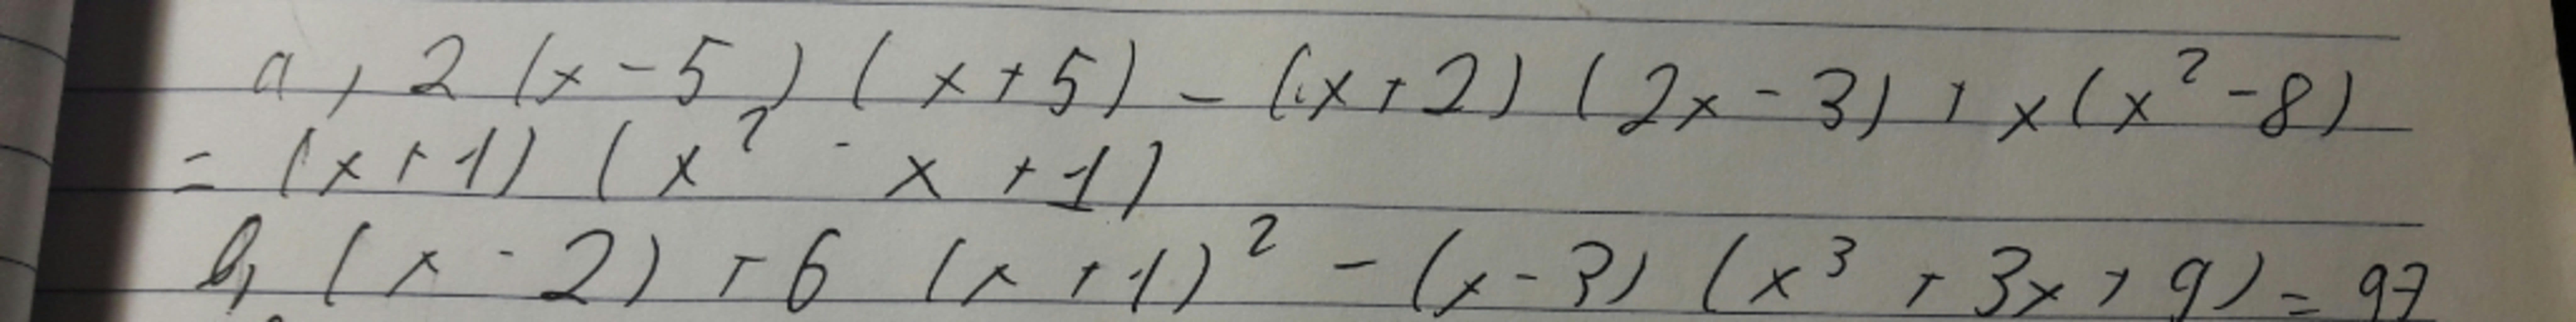 a, 2 (x - 5) (x + 5) - (x + 2) (2x - 3) + x (x² - 8)
= (x + 1) (x² - x + 1)
b, (x - 2) + 6 (x + 1)² - (x - 3) (x³ + 3x + 9) = 97